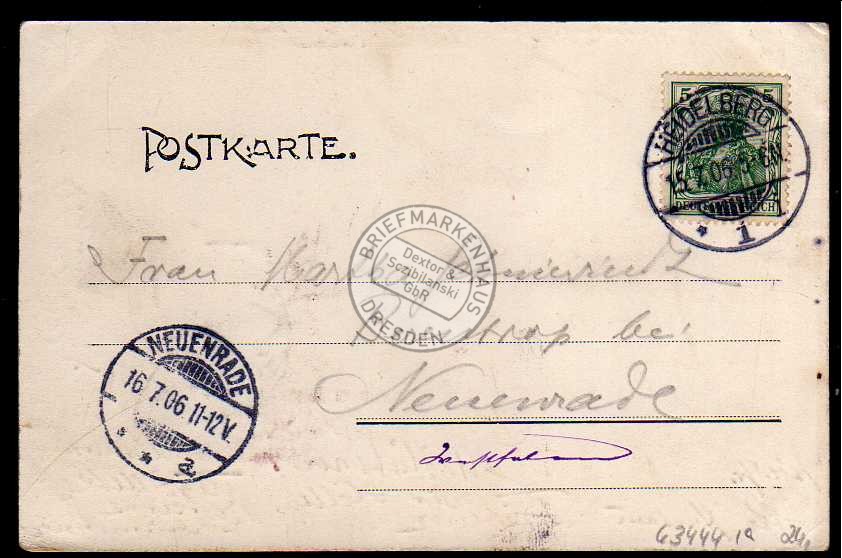 POSTKARTE.
5 5
HEIDELBERG
15.7.06
DEUTSCHES REICH
* 1
BRIEFMARKENHAUS
Dextor &
Sczibilanski
GbR
DRESDEN
Frau
bei
Neuenrade
Westfalen
NEUENRADE
16.7.06 11-12V.
* * a
63444 1a